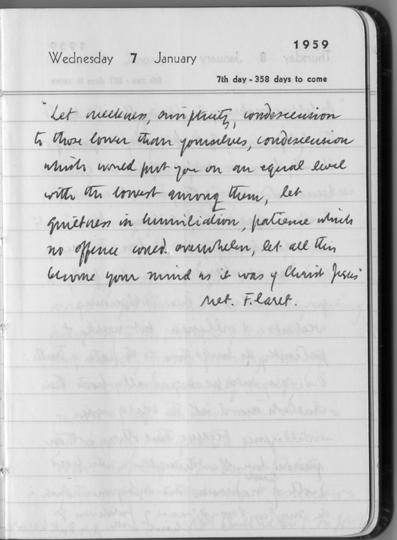 1959
Wednesday 7 January
7th day - 358 days to come
"Let meekness, simplicity, condescension
to those lower than yourselves, condescension
which would put you on an equal level
with the lowest among them, let
quietness in humiliation, patience which
no offence could overwhelm, let all this
become your mind as it was of Christ Jesus"